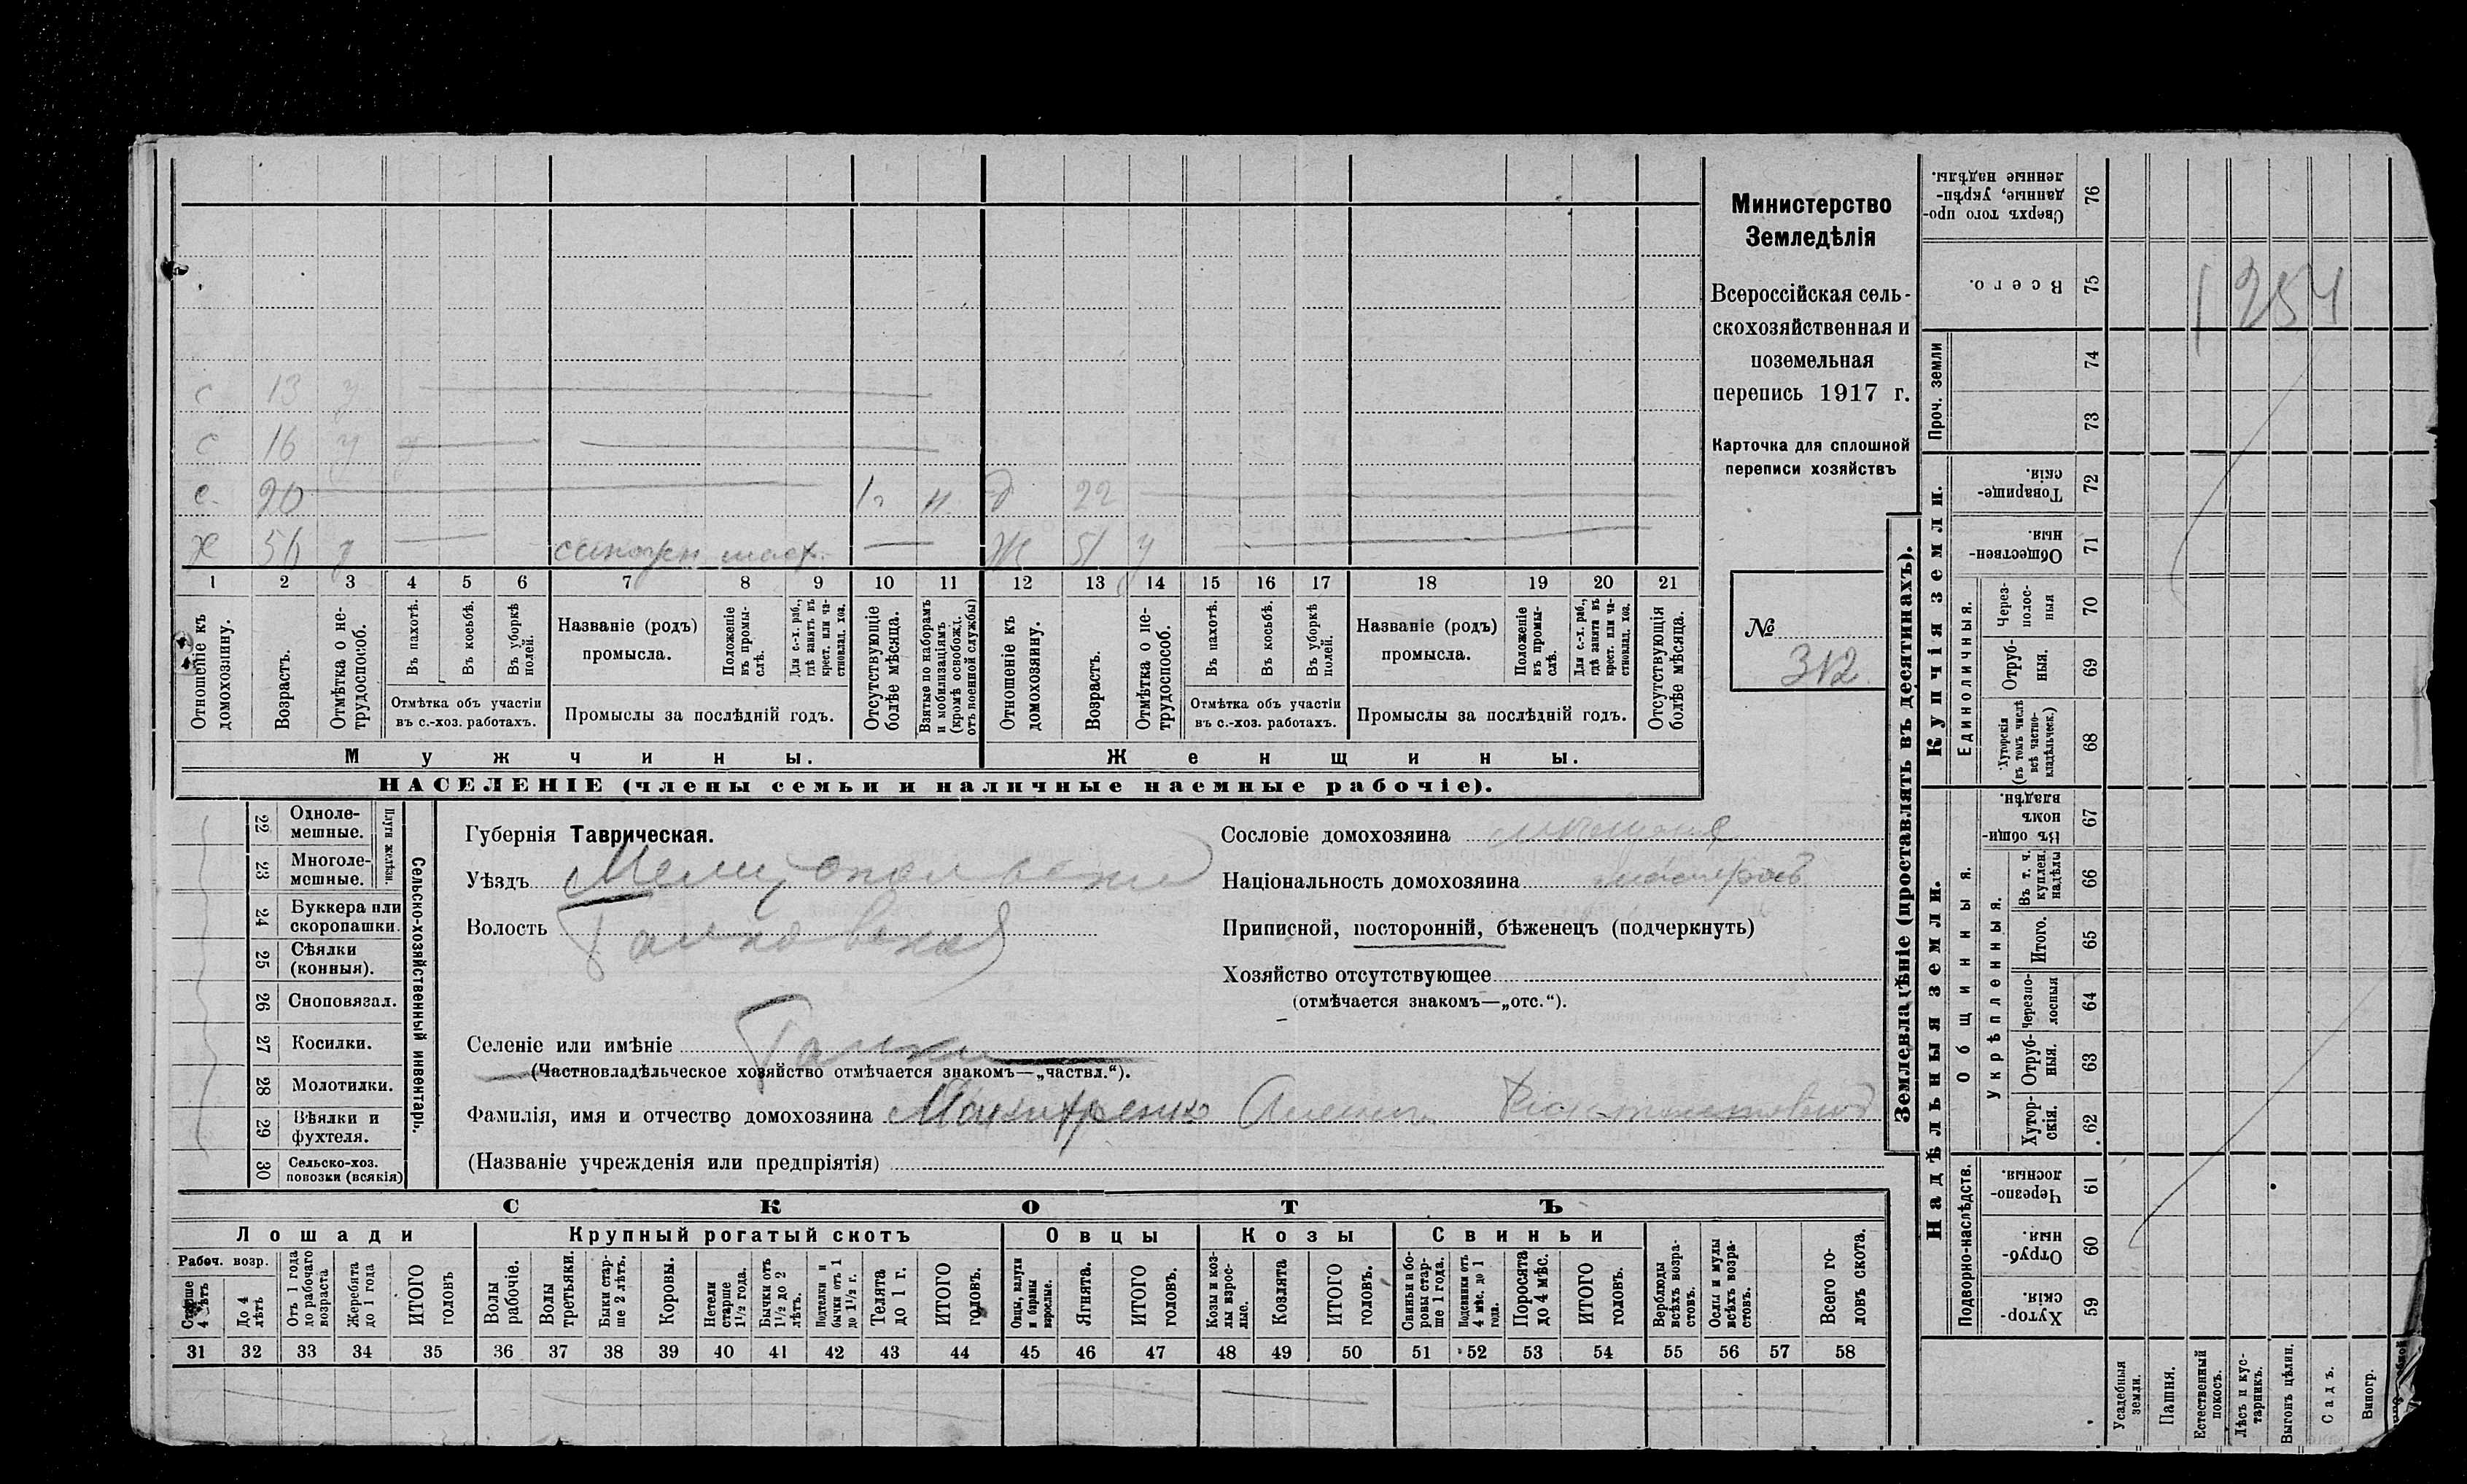 с 13 у
с 16 у
с. 20 1 г. н. д 22
х 56 у Ж 51 у
1 2 3 4 5 6 7 8 9 10 11 12 13 14 15 16 17 18 19 20 21
Отношеніе къ домохозяину.
Возрастъ.
Отмѣтка о не-
трудоспособ.
Въ пахотѣ.
Въ косьбѣ.
Въ уборкѣ
полей.
Отмѣтка объ участіи
въ с.-хоз. работахъ.
Названіе (родъ)
промысла.
Положеніе
въ промы-
слѣ.
Для с.-х. раб.,
гдѣ занятъ въ
крест. или ча-
стновлад. хоз.
Промыслы за послѣдній годъ.
Отсутствующіе
болѣе мѣсяца.
Взятые по наборамъ
и мобилизаціямъ
(кромѣ освобожд.
отъ военной службы)
Отношеніе къ
домохозяину.
Возрастъ.
Отмѣтка о не-
трудоспособ.
Въ пахотѣ.
Въ косьбѣ.
Въ уборкѣ
полей.
Отмѣтка объ участіи
въ с.-хоз. работахъ.
Названіе (родъ)
промысла.
Положеніе
въ промы-
слѣ.
Для с.-х. раб.,
гдѣ занята въ
крест. или ча-
стновлад. хоз.
Промыслы за послѣдній годъ.
Отсутствующія
болѣе мѣсяца.
Мужчины.
Женщины.
НАСЕЛЕНІЕ (члены семьи и наличные наемные рабочіе).
Министерство
Земледѣлія
Всероссійская сель-
скохозяйственная и
поземельная
перепись 1917 г.
Карточка для сплошной
переписи хозяйствъ
№
312
22 Одноле-
мешные.
23 Многоле-
мешные.
Плуги желѣзн.
24 Буккера или
скоропашки.
25 Сѣялки
(конныя).
26 Сноповязал.
27 Косилки.
28 Молотилки.
29 Вѣялки и
фухтеля.
30 Сельско-хоз.
повозки (всякія)
Сельско-хозяйственный инвентарь.
Губернія Таврическая.
Уѣздъ Мелитопольскій
Волость
Селеніе или имѣніе
(Частновладѣльческое хозяйство отмѣчается знакомъ—„частвл.“).
Фамилія, имя и отчество домохозяина
(Названіе учрежденія или предпріятія)
Сословіе домохозяина
Національность домохозяина
Приписной, посторонній, бѣженецъ (подчеркнуть)
Хозяйство отсутствующее
(отмѣчается знакомъ—„отс.“).
СКОТЪ
Лошади
Крупный рогатый скотъ
Овцы
Козы
Свиньи
Рабоч. возр.
Старше
4 лѣтъ
До 4
лѣтъ
Отъ 1 года
до рабочаго
возраста
Жеребята
до 1 года
ИТОГО
головъ
Волы
рабочіе.
Волы
третьяки.
Быки стар-
ше 2 лѣтъ.
Коровы.
Нетели
старше
1½ года.
Бычки отъ
1½ до 2
лѣтъ.
Подтелки и
бычки отъ 1
до 1½ г.
Телята
до 1 г.
ИТОГО
головъ.
Овцы, валухи
и бараны
взрослые.
Ягнята.
ИТОГО
головъ.
Козы и коз-
лы взрос-
лые.
Козлята
ИТОГО
головъ.
Свиньи и бо-
ровы стар-
ше 1 года.
Подсвинки отъ
4 мѣс. до 1
года.
Поросята
до 4 мѣс.
ИТОГО
головъ.
Верблюды
всѣхъ возра-
стовъ.
Ослы и мулы
всѣхъ возра-
стовъ.
Всего го-
ловъ скота.
31 32 33 34 35 36 37 38 39 40 41 42 43 44 45 46 47 48 49 50 51 52 53 54 55 56 57 58
Землевладѣніе (проставлять въ десятинахъ).
Надѣльныя земли.
Купчія земли.
Проч. земли
Подворно-наслѣдств.
Общинныя.
Укрѣпленныя.
Единоличныя.
Сверхъ того про-
данные, укрѣп-
ленные надѣлы. 76
Всего. 75
1254
74
73
Товарище-
скія. 72
Обществен-
ныя. 71
Через-
полос-
ныя 70
Отруб-
ныя. 69
Хуторскія
(въ томъ числѣ
всѣ частно-
владѣльческ.) 68
Въ общин-
номъ
владѣн. 67
Въ т. ч.
куплен.
надѣлы 66
Итого. 65
Черезпо-
лосныя 64
Отруб-
ныя. 63
Хутор-
скія. 62
Черезпо-
лосныя. 61
Отруб-
ныя. 60
Хутор-
скія. 59
Усадебныя
земли.
Пашня.
Естественный
покосъ.
Лѣсъ и кус-
тарникъ.
Выгонъ цѣлин.
Садъ.
Виногр.